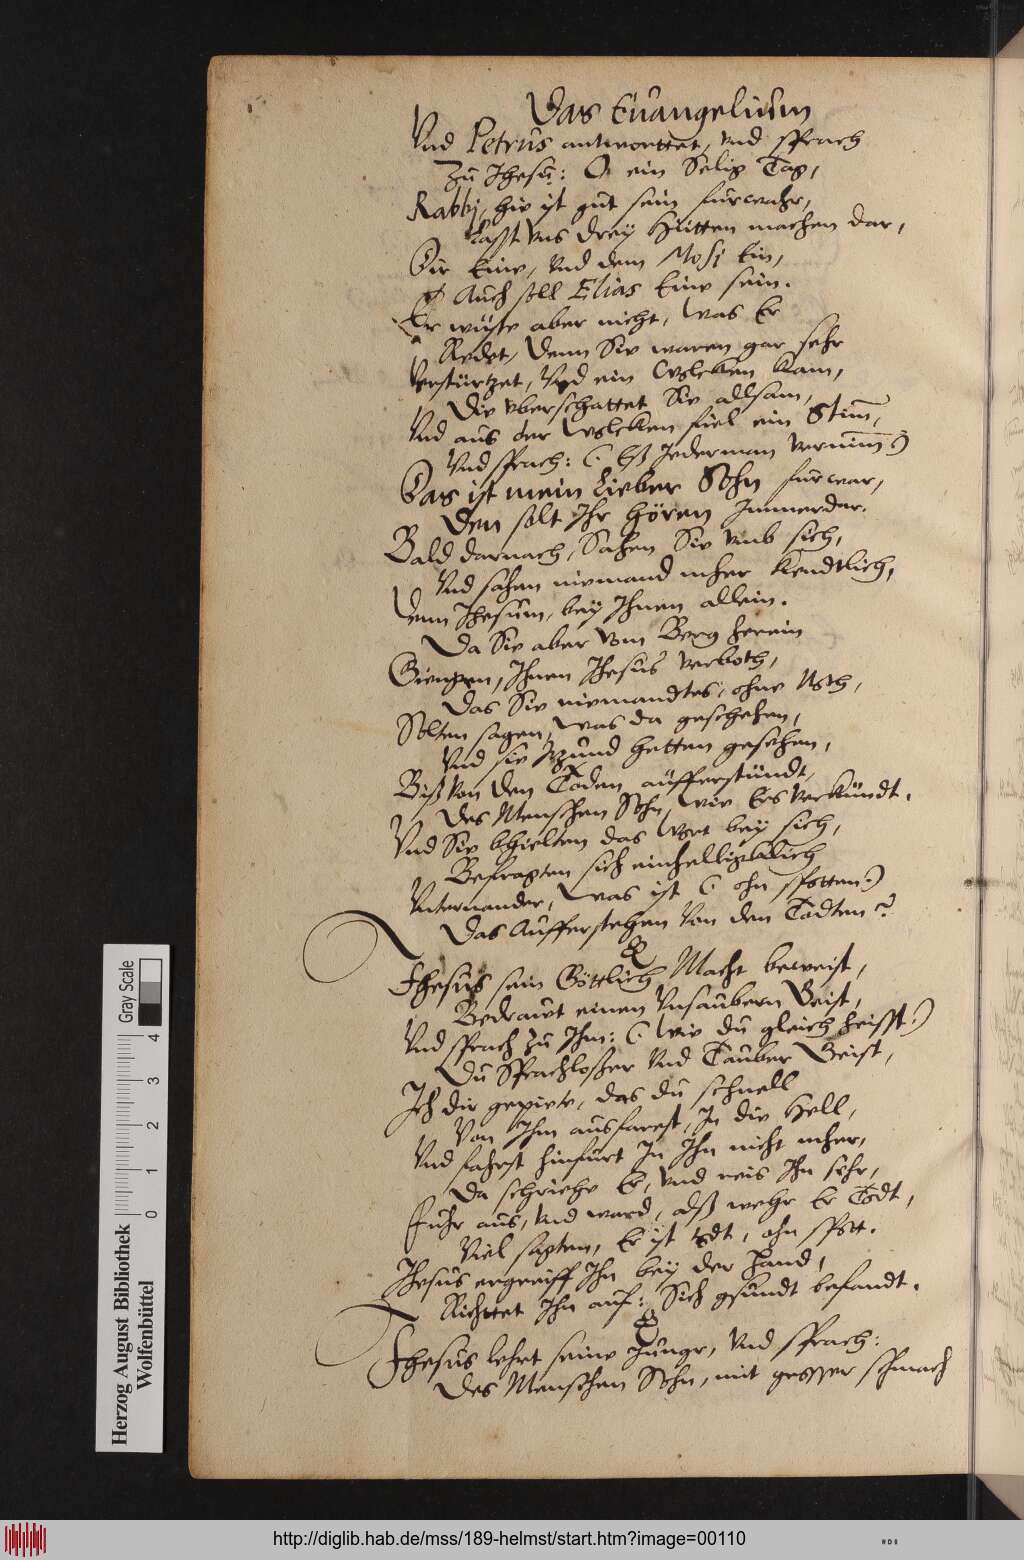 Das Euangelium
Vnd Petrus antworttet, vnd sprach
Zu Jhesu: O ein Selig Tag,
Rabbi, hie ist gut sein fürwahr,
Lasst vns drey Hütten machen dar,
Dir Eine, Vnd dem Mosi Ein,
Auch soll Elias Eine sein.
Er wuste aber nicht, Was Er
Redet, Denn Sie waren gar sehr
Verstürtzet, Vnd ein Wolcken kam,
Die vberschattet Sie allsam,
Vnd aus der Wolcken fiel ein Stim̄,
Vnd sprach: (: Es Jederman vernim̄ :)
Das ist mein Lieber Sohn fürwar,
Den solt Jhr hören Jmmerdar.
Bald darnach, Sahen Sie vmb sich,
Vnd sahen niemand mher kendtlich,
Denn Jhesum, bey Jhnen allein.
Da Sie aber vom Berg herein
Giengen, Jhnen Jhesus verboth,
Das Sie niemandtes, ohne Noth,
Solten sagen, Was da geschehen,
Vnd sie Jtzund hetten gesehen,
Biß Von den Toden aufferstündt,
Des Menschen Sohn, wie Ers verkündt.
Vnd Sie bhielten das Wort bey sich,
Befragten sich einhelliglich
Vnternander, Was ist (: ohn spotten :)
Das Aufferstehen Von den Todten?
Jhesus sein Göttlich Macht beweist,
Bedrawt einen Vnsaubern Geist,
Vnd sprach zu Jhm: (: Wie du gleich heisst :)
Du Sprachloßer Vnd Tauber Geist,
Jch dir gepiete, das du schnell
Von Jhm ausfarest, Jn die Hell,
Vnd fahrst hinfurt Jn Jhn nicht mher,
Da schriehe Er, Vnd reis Jhn sehr,
Fuhr aus, Vnd ward, alß wehr Er Todt,
Viel sagten, Er ist todt, ohn spott.
Jhesus ergreiff Jhn bey der Hand,
Richttet Jhn auf: Sich gsundt befandt.
Jhesus lehrt seine Junger, Vnd sprach:
Des Menschen Sohn, mit grosser schmach
Herzog August Bibliothek
Wolfenbüttel
0 1 2 3 4 Gray Scale
http://diglib.hab.de/mss/189-helmst/start.htm?image=00110